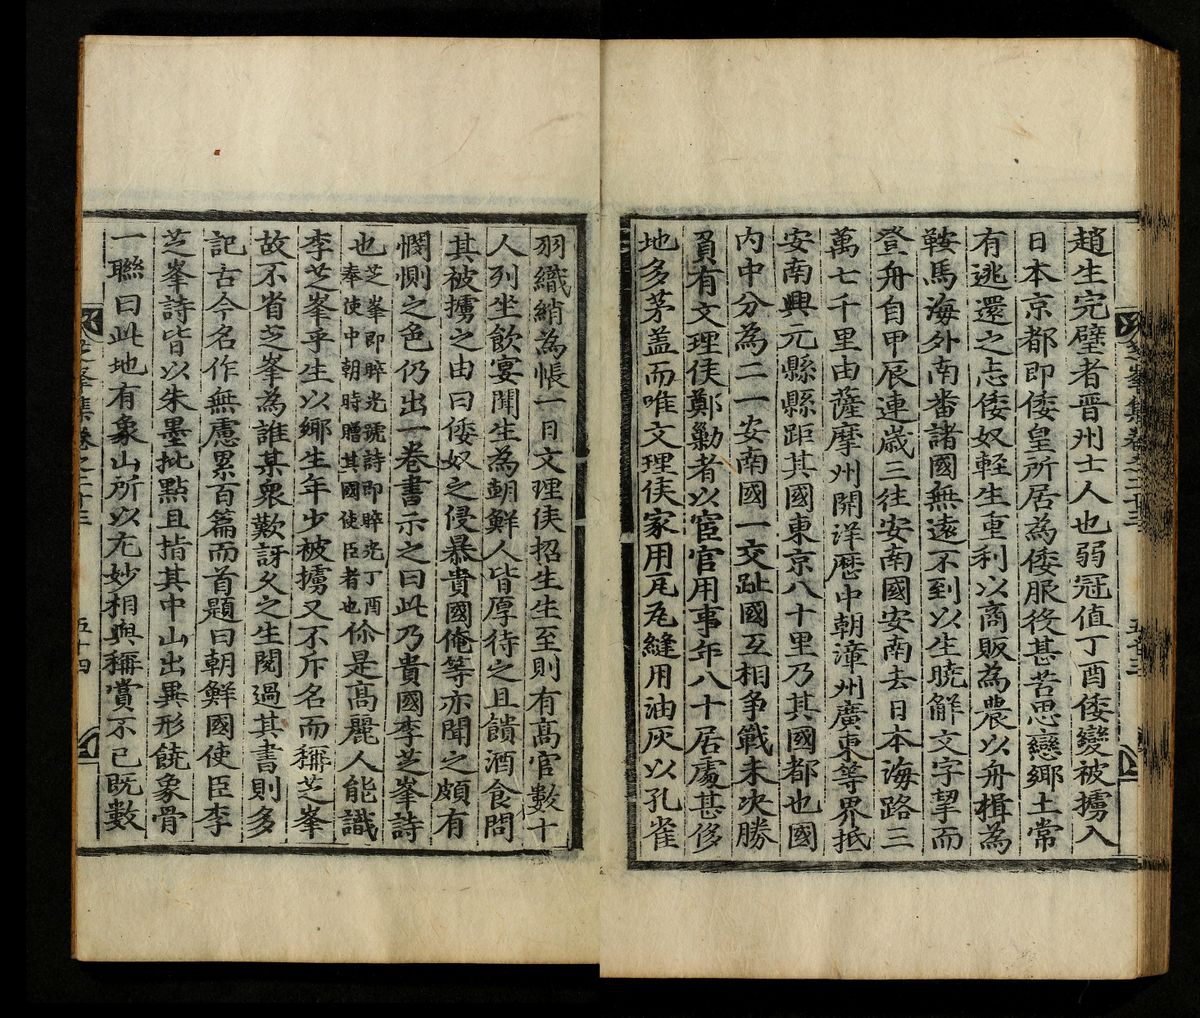 趙生完璧者晋州士人也弱冠值丁酉倭變被擄入
日本京都即倭皇所居為倭服役甚苦思戀鄉土常
有逃還之志倭奴輕生重利以商販為農以舟楫為
鞍馬海外南番諸國無遠不到以生曉解文字挈而
登舟自甲辰連歲三往安南國安南去日本海路三
萬七千里由薩摩州開洋歷中朝漳州廣東等界抵
安南興元縣縣距其國東京八十里乃其國都也國
內中分為二一安南國一交趾國互相爭戰未決勝
負有文理侯鄭勦者以宦官用事年八十居處甚侈
地多茅盖而唯文理侯家用瓦瓦縫用油灰以孔雀
羽織綃為帳一日文理侯招生生至則有高官數十
人列坐飲宴聞生為朝鮮人皆厚待之且饋酒食問
其被擄之由曰倭奴之侵暴貴國俺等亦聞之頗有
憫惻之色仍出一卷書示之曰此乃貴國李芝峯詩
也芝峯即睟光號詩即睟光丁酉奉使中朝時贈其國使臣者也你是高麗人能識
李芝峯乎生以鄉生年少被擄又不斥名而稱芝峯
故不省芝峯為誰某衆歎訝久之生閱過其書則多
記古今名作無慮累百篇而首題曰朝鮮國使臣李
芝峯詩皆以朱墨批點且指其中山出異形饒象骨
一聯曰此地有象山所以尤妙相與稱賞不已既數
芝峯集卷之二十三
五十四